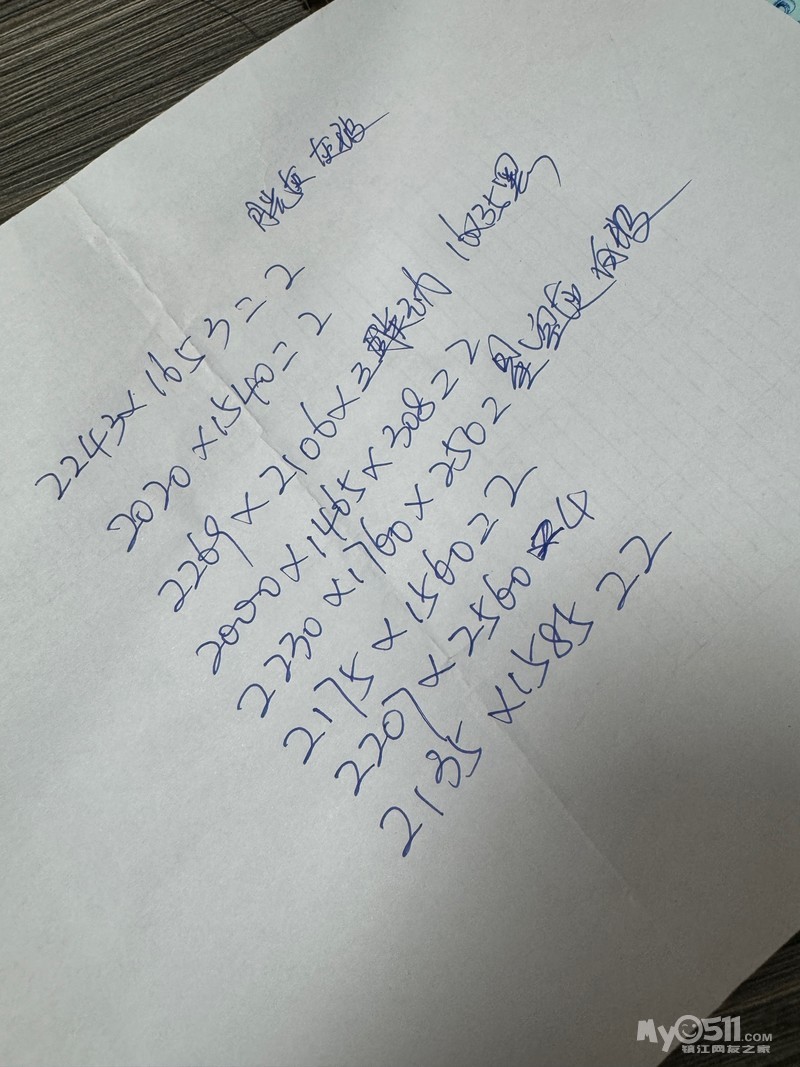 2243×1653=2
2020×1540=2
2269×2106×3 联动
2000×1465×308=2
2230×1760×250=2
2175×1560=2
2207×2560 4
2135×1585=2
My0511.COM
镇江网友之家